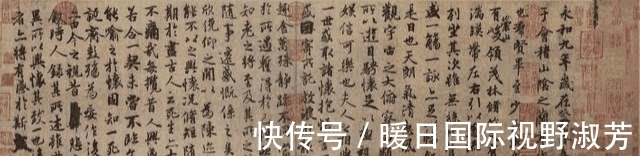 永和九年歲在
于會稽山陰之
也羣賢畢至少
有崇山峻領茂林脩
湍暎帶左右引
列坐其次雖無
盛一觴一詠亦
是日也天朗氣清
觀宇宙之大俯
所以遊目騁懷足
娛信可樂也夫人
一世或取諸懷抱
或因寄所託放
趣舍萬殊靜躁不
於所遇暫得於
知老之將至及其所之
隨事遷感慨係之矣
欣俛仰之閒以為陳迹
能不以之興懷況脩短
期於盡古人云死生
不痛哉每攬昔人興
若合一契未嘗不臨
能喻之於懷固知一死
誕齊彭殤為妄作後
今之視昔
敘時人錄其所述雖
異所以興懷其致一也
者亦將有感於斯
快传号 / 暖日国际视野淑芳